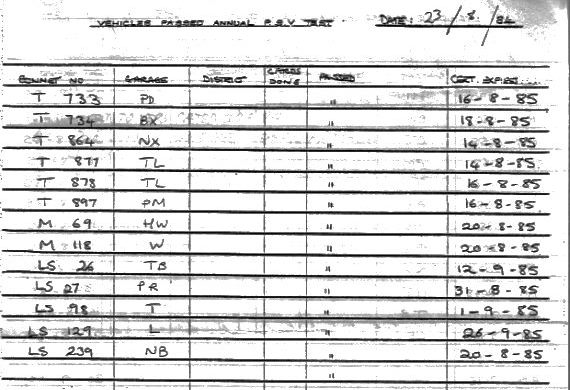 VEHICLES PASSED ANNUAL P.S.V TEST. DATE: 23/8/84
BONNET NO GARAGE DISTRICT CARDS DONE PASSED CERT. EXPIRES
T 733 PD " 16-8-85
T 734 BX " 18-8-85
T 864 NX " 14-8-85
T 877 TL " 14-8-85
T 878 TL " 16-8-85
T 897 PM " 16-8-85
M 69 HW " 20-8-85
M 118 W " 20-8-85
LS 26 TB " 12-9-85
LS 27 PR " 31-8-85
LS 98 T " 1-9-85
LS 129 L " 26-9-85
LS 239 NB " 20-8-85
"